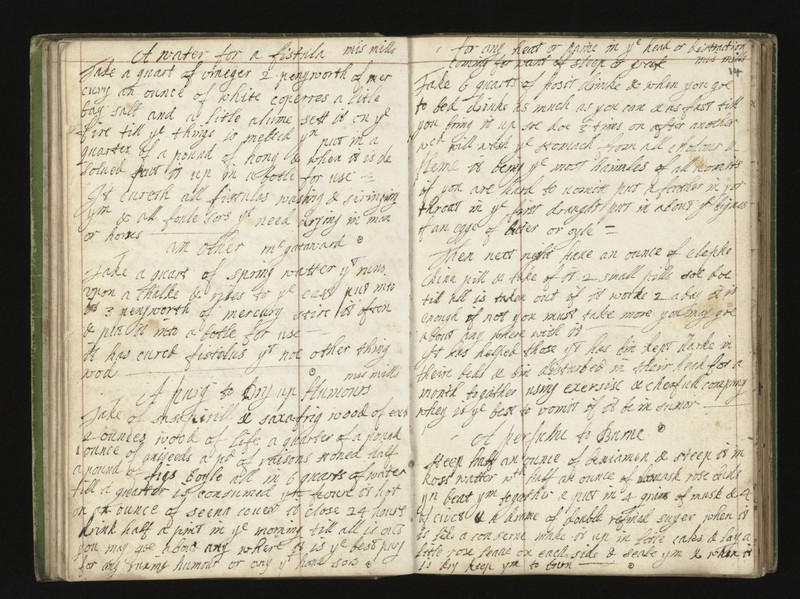 A water for a fistula mis mills
Take a quart of vineger 2 penyworth of mer
cury an ounce of white coperres a litle
bay salt and a litle alume sett it on ye
fire till ye things is melted yn put in a
quarter of a pound of hony & when it is de
solued put it up in a botle for use
It cureth all fistulas washing & siringing
ym & all foule sors yt need drying in man
or hors
an other mr goward
Take a quart of spring watter yt runs
upon a chalke & rises to ye east put into
it 3 penyworth of mercury stire it often
& put it into a botle for use
it has cured fistulas yt noe other thing
wod
mis mills
A purg to Dry up Humours
Take of sasaperill & saxafrig wood of each
2 ounces wood of life a quarter of a pound
ounce of a pd of raisons stoned half
a pound of figs boyle all in 6 quarts of water
till a quarter is consumed yn poure it hot
on an ounce of seena couer it close 24 hours
drink half a pint in ye morning till all is out
you may goe about any where it is ye best purg
for any runing humour or any yt haue sors
for any heat or paine in ye head or distraction
coming for want of sleep or greife mis mills
14
Take 6 quarts of posit drinke & when you goe
to bed drinke as much as you can & as fast till
you bring it up soe doe 3 times on after another
wch will wash ye stomack from all cholour &
fleme it being ye most harmles of all vomits
if you are hard to vomit put a feather in yor
throat in ye first draught put in about ye bignes
of an egge of buter or oyle
Then next night haue an ounce of elepho
chine pill & take of it 2 small pills soe doe
till all is taken out if it works 2 a day it is
enough if not you must take more you may goe
about any where with it
It has helped those yt has bin kept darke in
their beds & bin disturbed in their head for a
month together using exersise & cherfull company
they as ye best to vomit if it be in sumer
A perfume to Burne
steep half an ounce of beniamen & steep it in
Rose watter wth half an ounce of damask rose buds
yn beat ym together & put in 4 grans of musk & 4
of ciuet & a drame of double refined suger when it
is like a conserue make it up in litle cakes & lay a
litle rose leaue on each side & seale ym & when it
is dry keep ym to burn